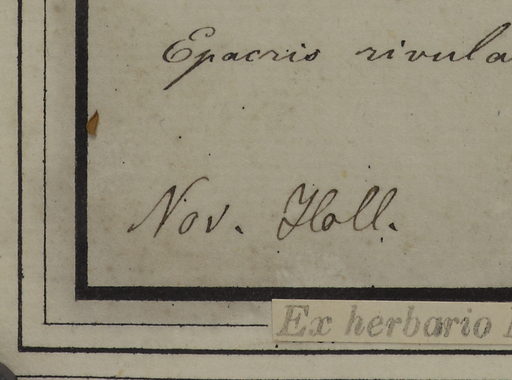 Epacris rivula
Nov. Holl.
Ex herbario